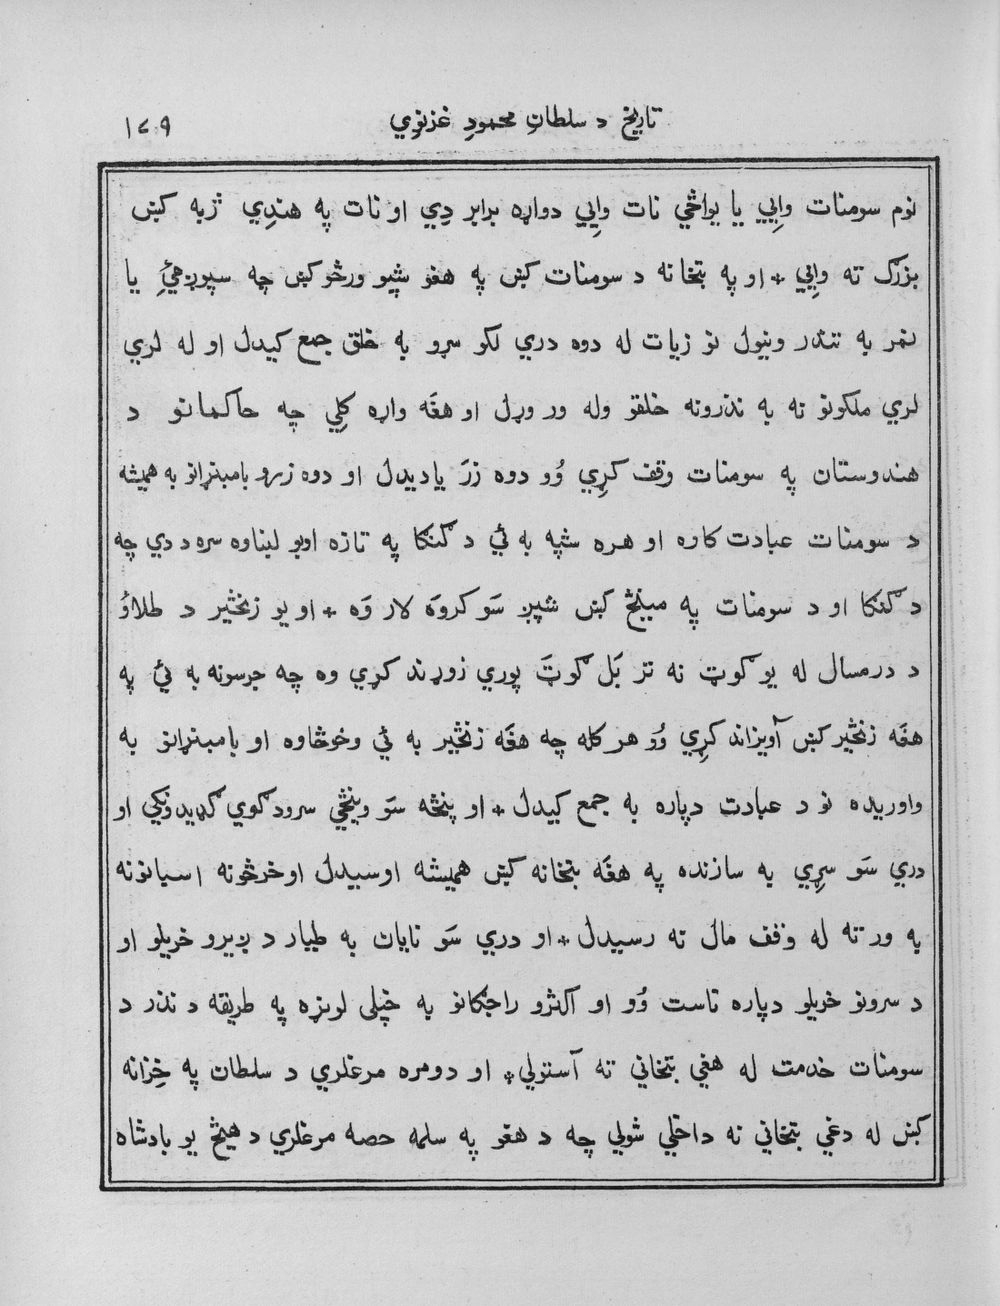 تاريخ د سلطانِ محمودِ غزنوي ۱۷۹
نوم سومنات وايي يا يواځي نات وايي دواړه برابر دي او نات په هندي ژبه کښ
بزرګ ته وايي + او په بتخانه د سومنات کښ په هغو شپو ورځو کښ چه سپوږمۍ يا
نمر به تندر ونيول نو زيات له دوه دري لکو سړو به خلق جمع کيدل او له لري
لري ملکونو نه به نذرونه خلقو وله ور وړل او هغَه واړه کلي چه حاکمانو د
هندوستان په سومنات وقف کړي وُو دوه زرَ ياديدل او دوه زرو بامبنړانو به هميشه
د سومنات عبادت کاوه او هره شپه به ئي د ګنګا په تازه اوبو لمباوه سره د دي چه
د ګنګا او د سومنات په مينځ کښ شپږ سَو کروَه لار وَه + او يو زنځير د طلاؤ
د درمسال له يو ګوټ نه تر بَل ګوټَ پوري زوړند کړي وه چه جرسونه به ئي په
هغَه زنځير کښ آويزاند کړي وُو هر کله چه هغَه زنځير به ئي وخوځاوه او بامبنړانو به
واوريده نو د عبادت دپاره به جمع کيدل + او پنځه سَو وينځي سرود ګوي ګډيدونکي او
دري سَو سړي به سازنده په هغَه بتخانه کښ هميشه اوسيدل او خرڅونه اسبانونه
به ورته له وقف مال نه رسيدل + او دري سَو نايان به طيار د ږيرو خريلو او
د سرونو خريلو دپاره ناست وُو او اکثرو راجګانو به خپلي لوڼړه په طريقه د نذر د
سومنات خدمت له هغي بتخاني ته آستولي + او دومره مرغلري د سلطان په خِزانه
کښ له دغي بتخاني نه داخلي شولي چه د هغو په سلمه حصه مرغلري د هيڅ يو بادشاه